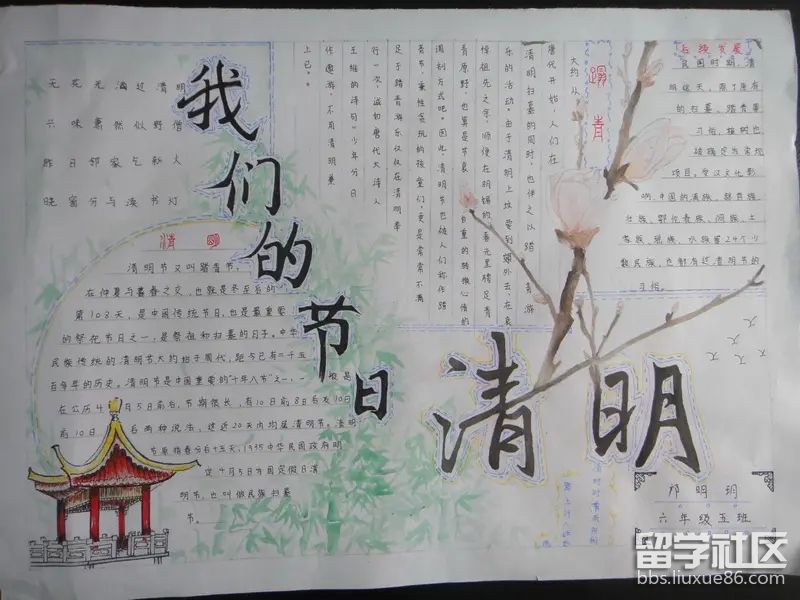 我们的节日
清明
无花无酒过清明
兴味萧然似野僧
昨日邻家乞新火
晓窗分与读书灯
清明
清明节又叫踏青节，
在仲夏与暮春之交，也就是冬至后的
第108天，是中国传统节日，也是最重要
的祭祀节日之一，是祭祖和扫墓的日子。中华
民族传统的清明节大约始于周代，距今已有二千五
百多年的历史。清明节是中国重要的"十年八节"之一，一般是
在公历4月5日前后，节期很长，有10日前8日后及10日
前10日后两种说法，这近20天内均属清明节。清明
节原指春分后十五天，1935中华民国政府明
定4月5日为国定假日清
明节，也叫做民族扫墓
节。
踏青
大约从
唐代开始，人们在
清明扫墓的同时，也伴之以踏青游
乐的活动。由于清明上坟要到郊外去，在哀
悼祖先之余，顺便在明媚的春光里
青原野，也算是节哀自重的转换心情的
调剂方式吧。因此清明节也被人们称作踏
青节，童性贪玩的孩童们，更是常常不满
足于踏青游乐仅仅在清明举
行一次，诚如唐代大诗人
王维的诗句"少年分日
作遨游，不用清明兼
上巳。"
后续发展
民国时期，清
明这天，除了原有
的扫墓、踏青等
习俗，植树也
被确定为
项目。受汉文化影
响，中国的满族、赫哲族
壮族、鄂伦春族、侗族、土
家族、苗族、水族等24个少
数民族，也都有过清明节的
习俗。
清明时节雨纷纷
路上行人欲断
魂
邝明玥
六年级五班
留学社区
bbs.liuxue86.com